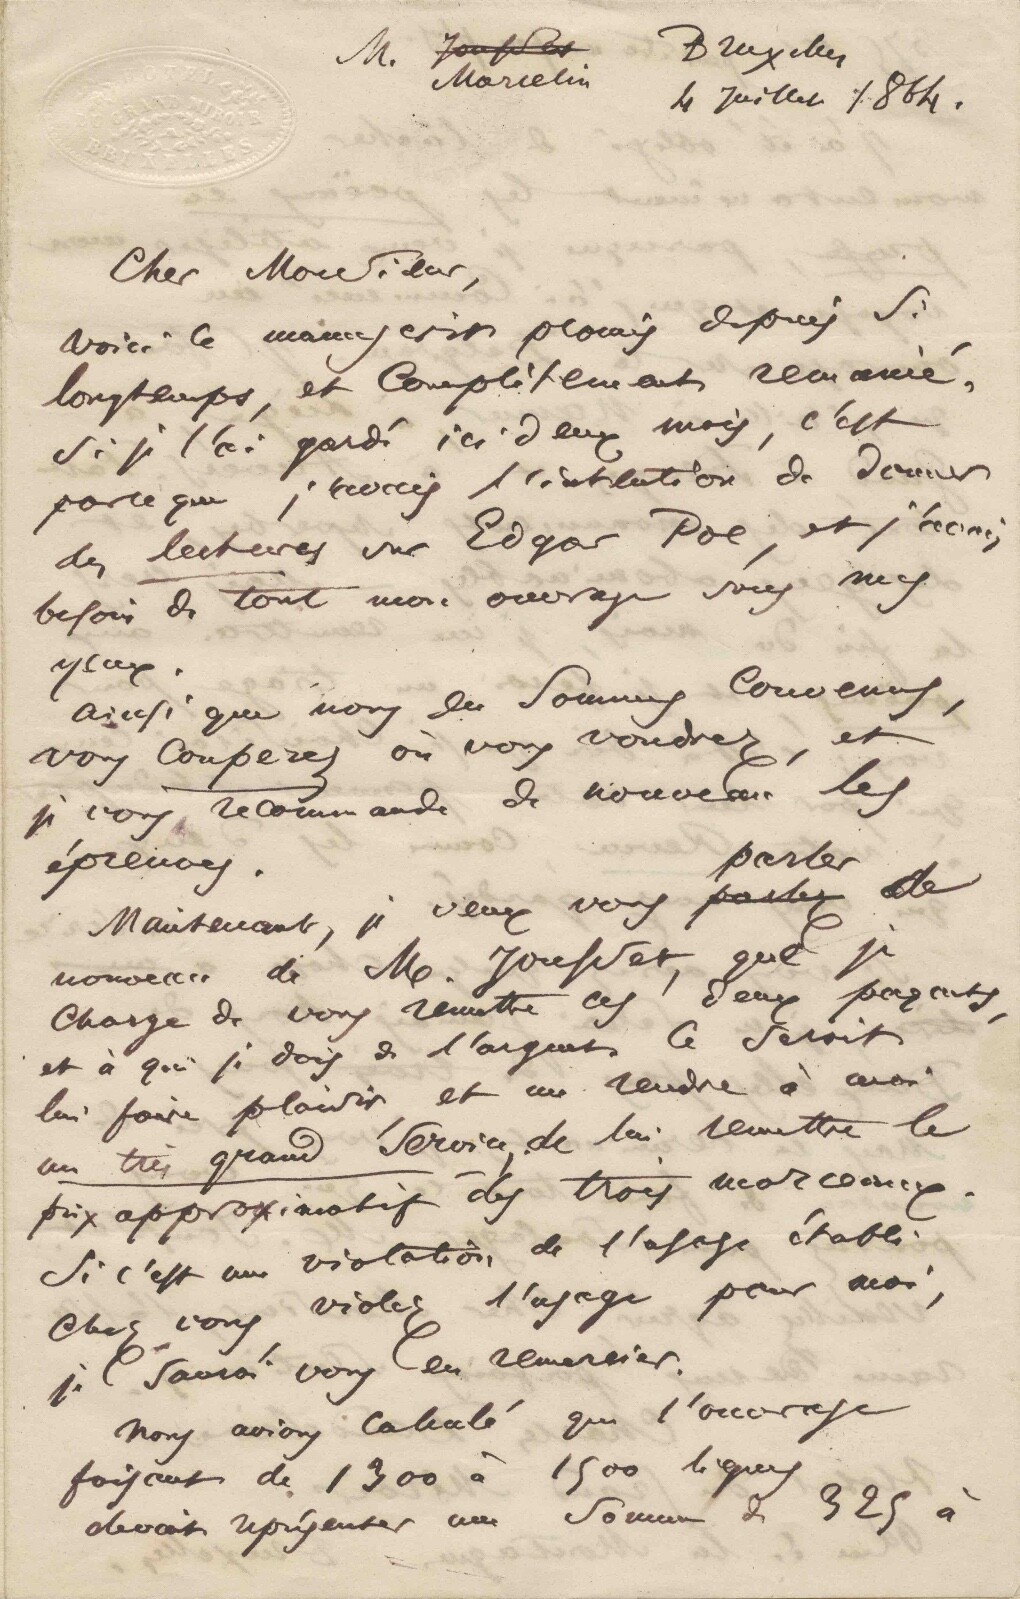 M. Jousset Bruxelles
Marcelin
4 Juillet 1864.
HÔTEL DU
GRAND MIROIR
BRUXELLES
Cher Monsieur,
Voici le manuscrit promis depuis si
longtemps, et complètement remanié.
Si je l'ai gardé ici deux mois, c'est
parce que j'avais l'intention de donner
des lectures sur Edgar Poe, et j'avais
besoin de tout mon ouvrage sous mes
yeux.
Ainsi que nous en sommes convenus,
vous couperez où vous voudrez, et
je vous recommande de nouveau les
épreuves.
parler
Maintenant, je veux vous parler de
nouveau de M. Jousset, que je
charge de vous remettre ces deux paquets,
et à qui je dois de l'argent. Ce serait
lui faire plaisir, et me rendre à moi
un très grand service, de lui remettre le
prix approximatif des trois morceaux.
Si c'est une violation de l'usage établi
chez vous, violez l'usage pour moi,
je saurai vous en remercier.
Nous avions calculé que l'ouvrage
faisant de 1300 à 1500 lignes
devait représenter une somme de 325 à